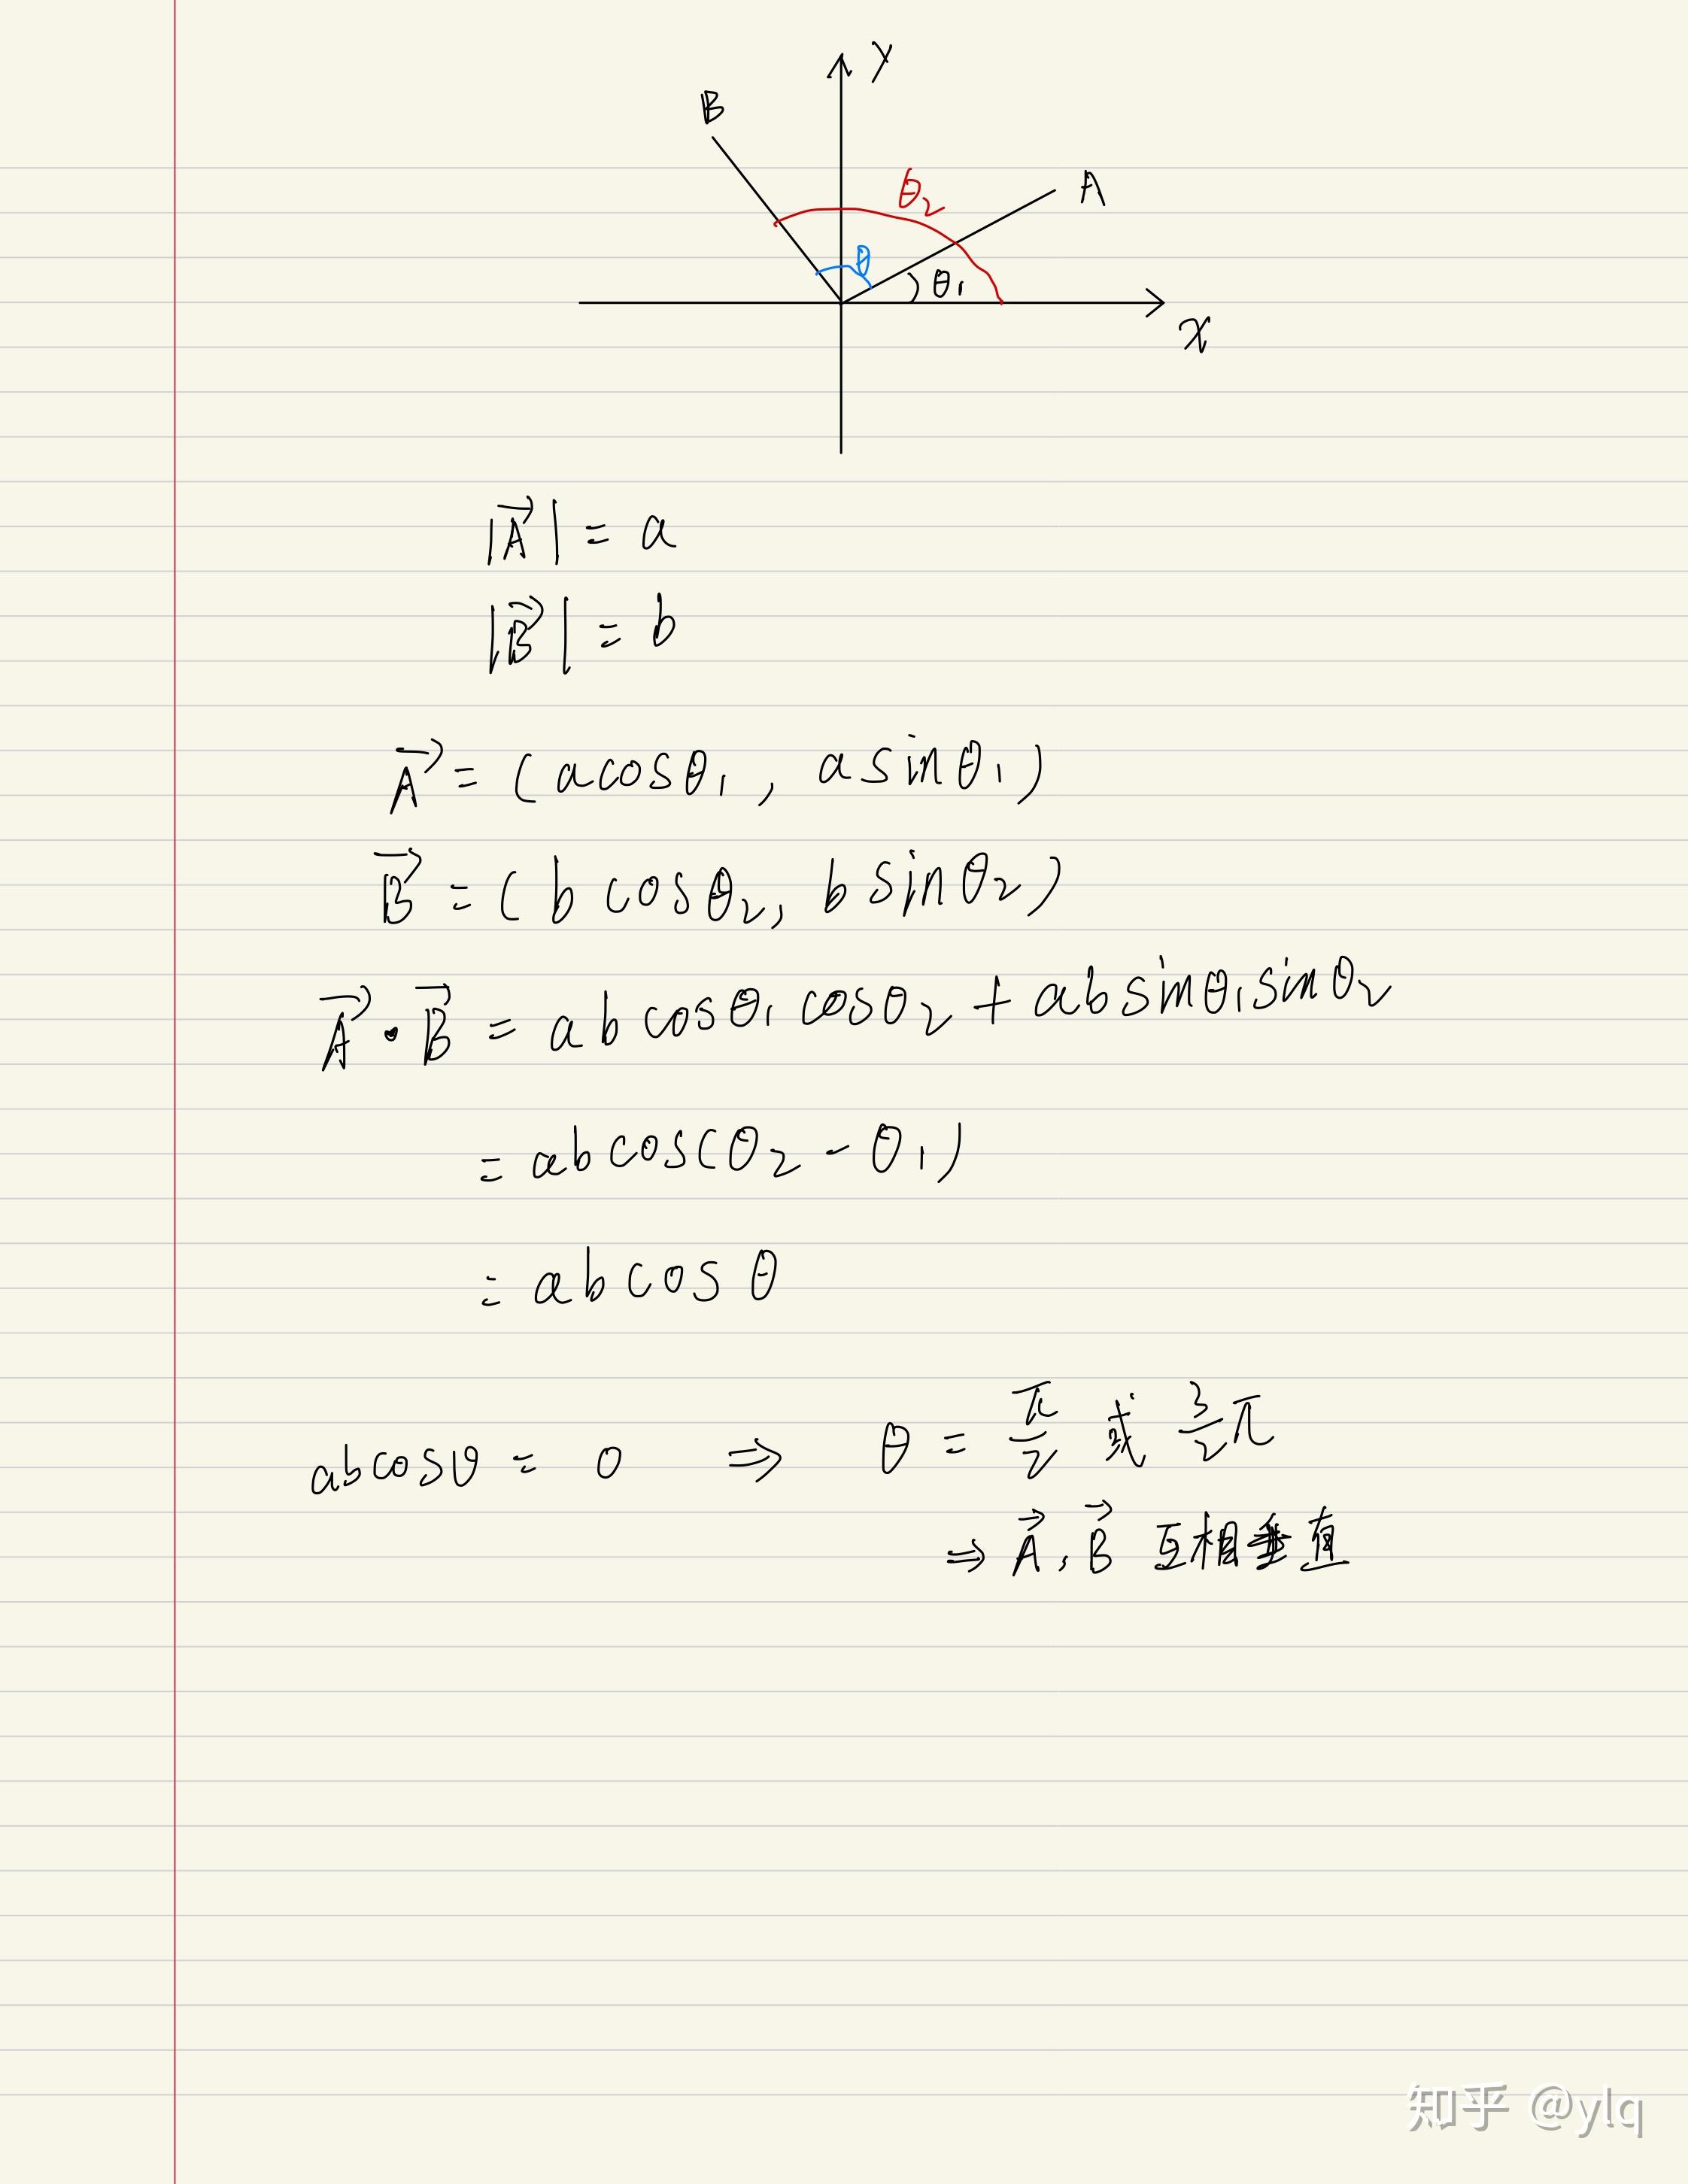 y
B
θ₂
A
θ
θ₁
x
|A⃗| = a
|B⃗| = b
A⃗ = (acosθ₁, asinθ₁)
B⃗ = (bcosθ₂, bsinθ₂)
A⃗·B⃗ = abcosθ₁cosθ₂ + absinθ₁sinθ₂
= abcos(θ₂ - θ₁)
= abcosθ
abcosθ = 0 ⇒ θ = π/2 或 3/2 π
⇒ A⃗, B⃗ 互相垂直
知乎 @ylq